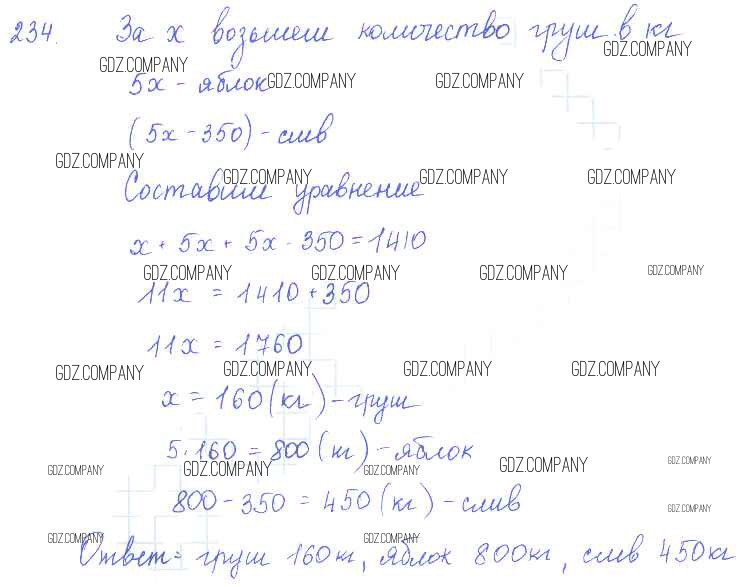 234. За x возьмем количество груш в кг
GDZ.COMPANY
GDZ.COMPANY GDZ.COMPANY GDZ.COMPANY
5x - яблок
(5x - 350) - слив
GDZ.COMPANY GDZ.COMPANY GDZ.COMPANY GDZ.COMPANY
Составим уравнение
x + 5x + 5x - 350 = 1410
GDZ.COMPANY GDZ.COMPANY GDZ.COMPANY GDZ.COMPANY
11x = 1410 + 350
11x = 1760
GDZ.COMPANY GDZ.COMPANY GDZ.COMPANY GDZ.COMPANY
x = 160 (кг) - груш
5 · 160 = 800 (кг) - яблок
GDZ.COMPANY GDZ.COMPANY GDZ.COMPANY GDZ.COMPANY GDZ.COMPANY
800 - 350 = 450 (кг) - слив
GDZ.COMPANY
GDZ.COMPANY GDZ.COMPANY
Ответ: груш 160 кг, яблок 800 кг, слив 450 кг